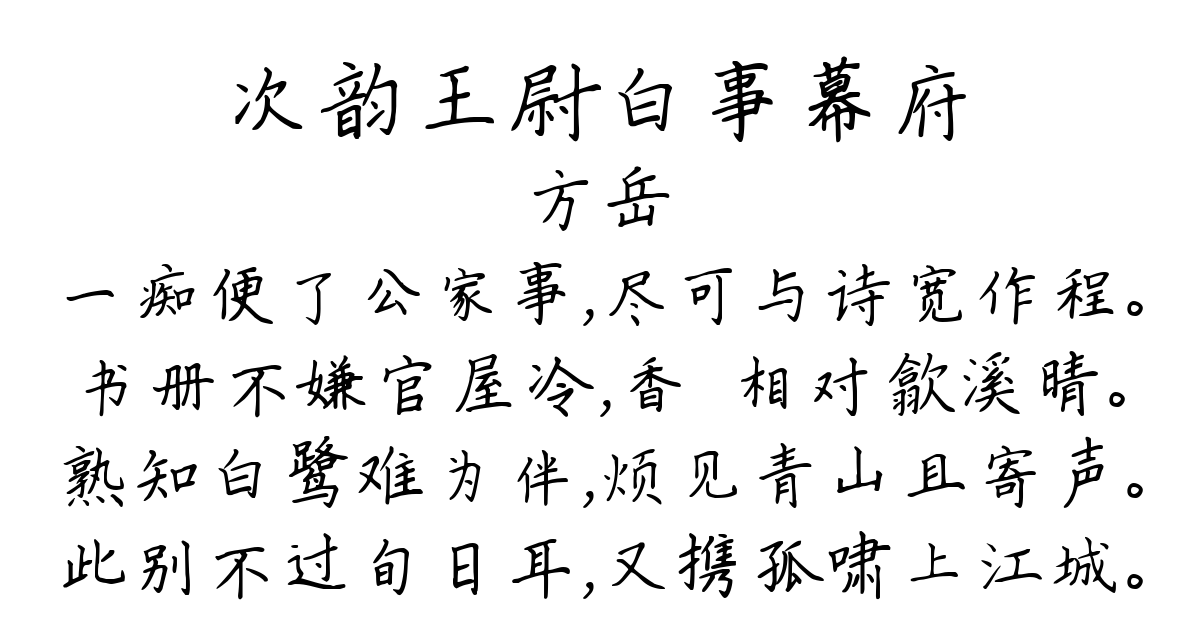 次韵王尉白事幕府
方岳
一痴便了公家事,尽可与诗宽作程。
书册不嫌官屋冷,香 相对歙溪晴。
熟知白鹭难为伴,烦见青山且寄声。
此别不过旬日耳,又携孤啸上江城。